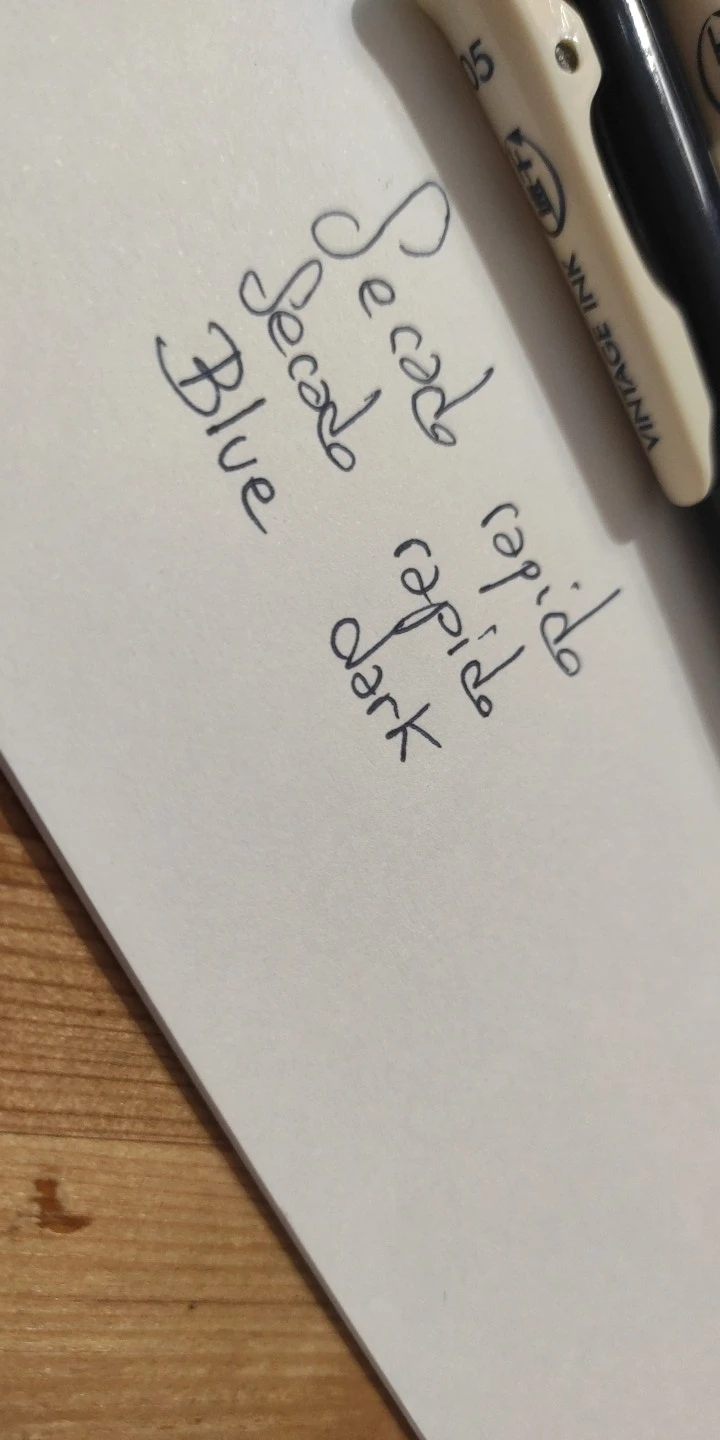 Secado rapido
Secado rapido
Blue dark
05
VINTAGE INK